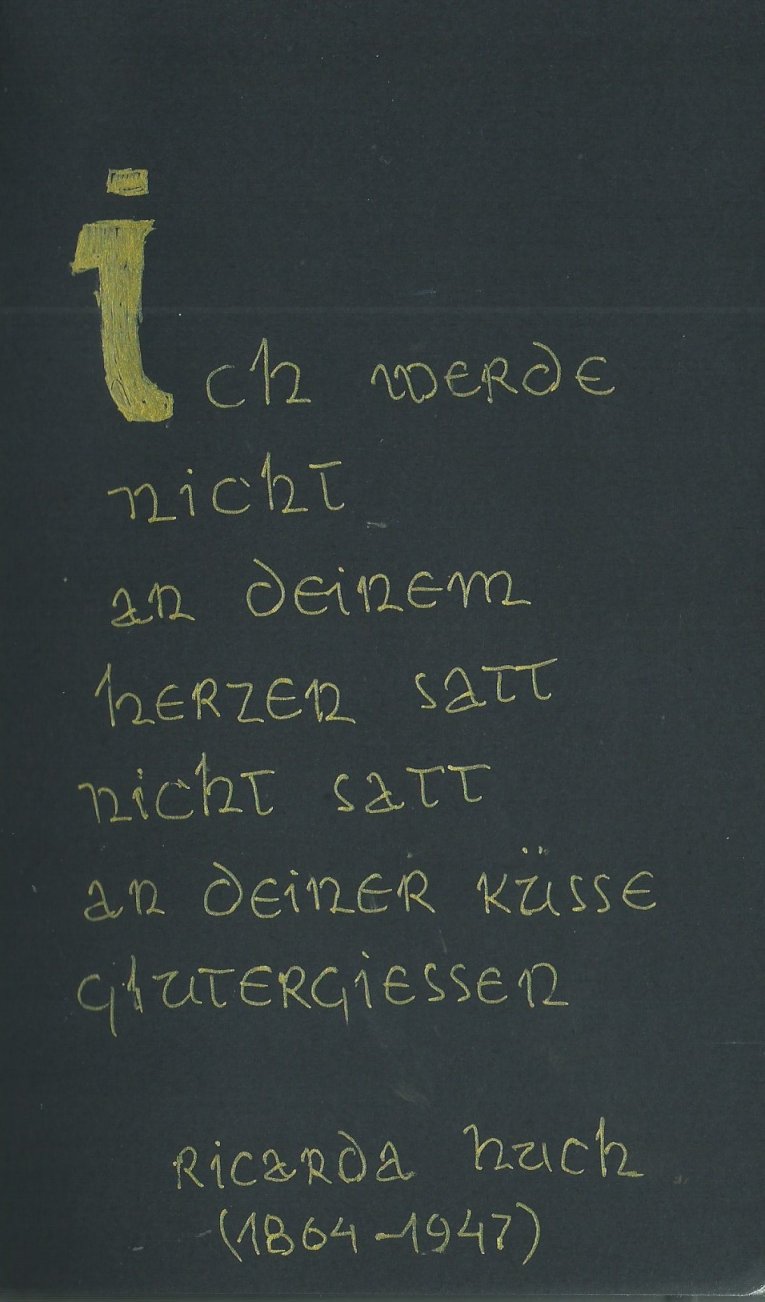 ich werde
nicht
an deinem
herzen satt
nicht satt
an deiner küsse
glutergiessen
ricarda huch
(1864-1947)